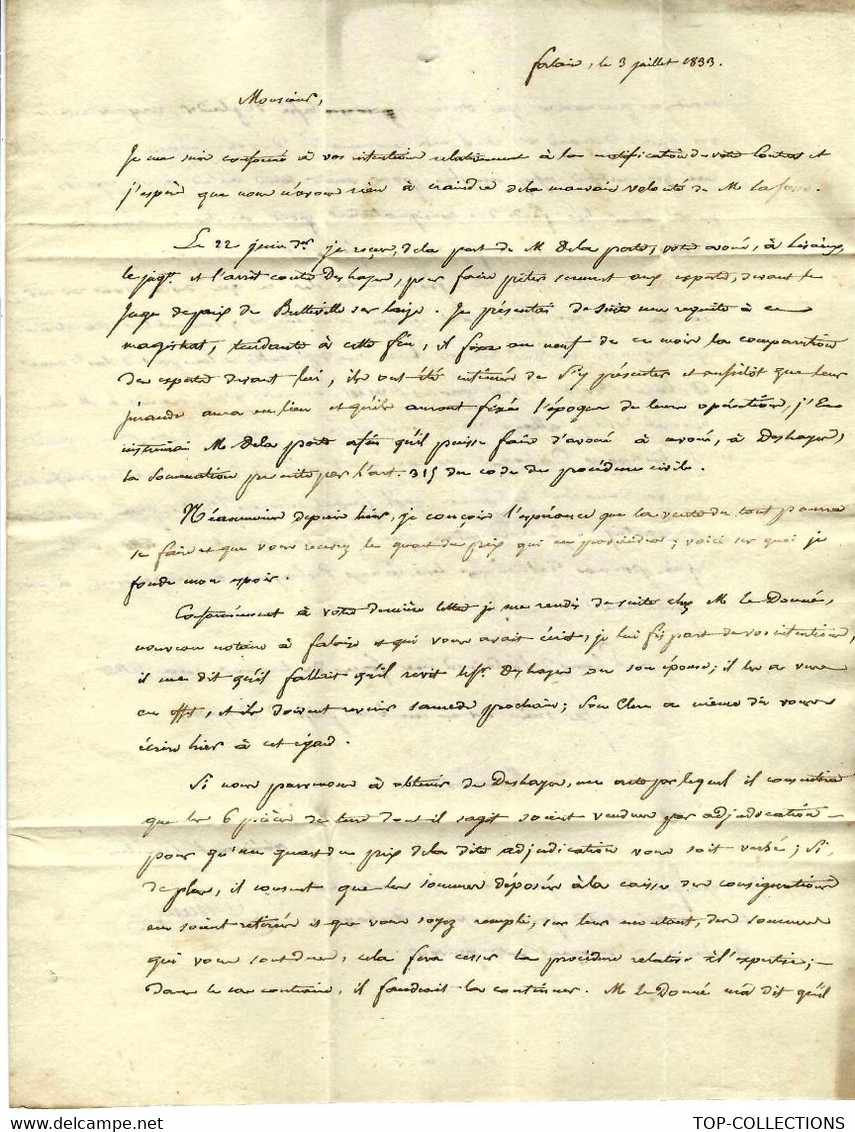 falaise, le 3 juillet 1833.
Monsieur,
Je me suis conformé à vos intentions relativement à la notification de votre Contrat et
j'espère que nous n'avons rien à craindre de la mauvaise volonté de M Lafosse.
Le 22 juin dr. je reçus, de la part de M De la porte, votre avoué, à Lisieux,
le jugt. et l'arrêt contre Deshayes, pour faire prêter serment aux experts, devant le
Juge de paix de Bretteville sur laize. Je présentai de suite une requête à ce
magistrat, tendante à cette fin, il fixa au neuf de ce mois la comparution
des experts devant lui, ils ont été intimés de s'y présenter et aussitôt que leur
jurande aura eu lieu et qu'ils auront fixé l'époque de leurs opérations, j'en
instruirai M De la porte afin qu'il puisse faire d'avoué à avoué, à Deshayes,
la sommation prescrite par l'art. 315 du code de procédure civile.
Néanmoins depuis hier, je conçois l'espérance que la vente du tout pourra
se faire et que vous recevrez le quart du prix qui en proviendra; voici sur quoi je
fonde mon espoir.
Conformément à votre dernière lettre je me rendis de suite chez M le Donné,
nouveau notaire à falaise et qui vous avait écrit, je lui fis part de vos intentions,
il me dit qu'il fallait qu'il revit le Sr. Deshayes ou son épouse; il les a vus
en effet, et ils doivent revenir samedi prochain; Son Clerc a même dû vous
écrire hier à cet égard.
Si nous parvenons à obtenir de Deshayes, un acte par lequel il consentira
que les 6 pièces de terre dont il sagit soient vendues par adjudication
pour qu'un quart du prix de la dite adjudication vous soit versé; Si
de plus, il consent que les sommes déposées à la caisse des consignations
en soient retirées et que vous soyez rempli, sur leur montant, des sommes
qui vous sont dues, cela fera cesser la procédure relative à l'expertise;
dans le cas contraire, il faudrait la continuer. M le Donné m'a dit qu'il
TOP-COLLECTIONS